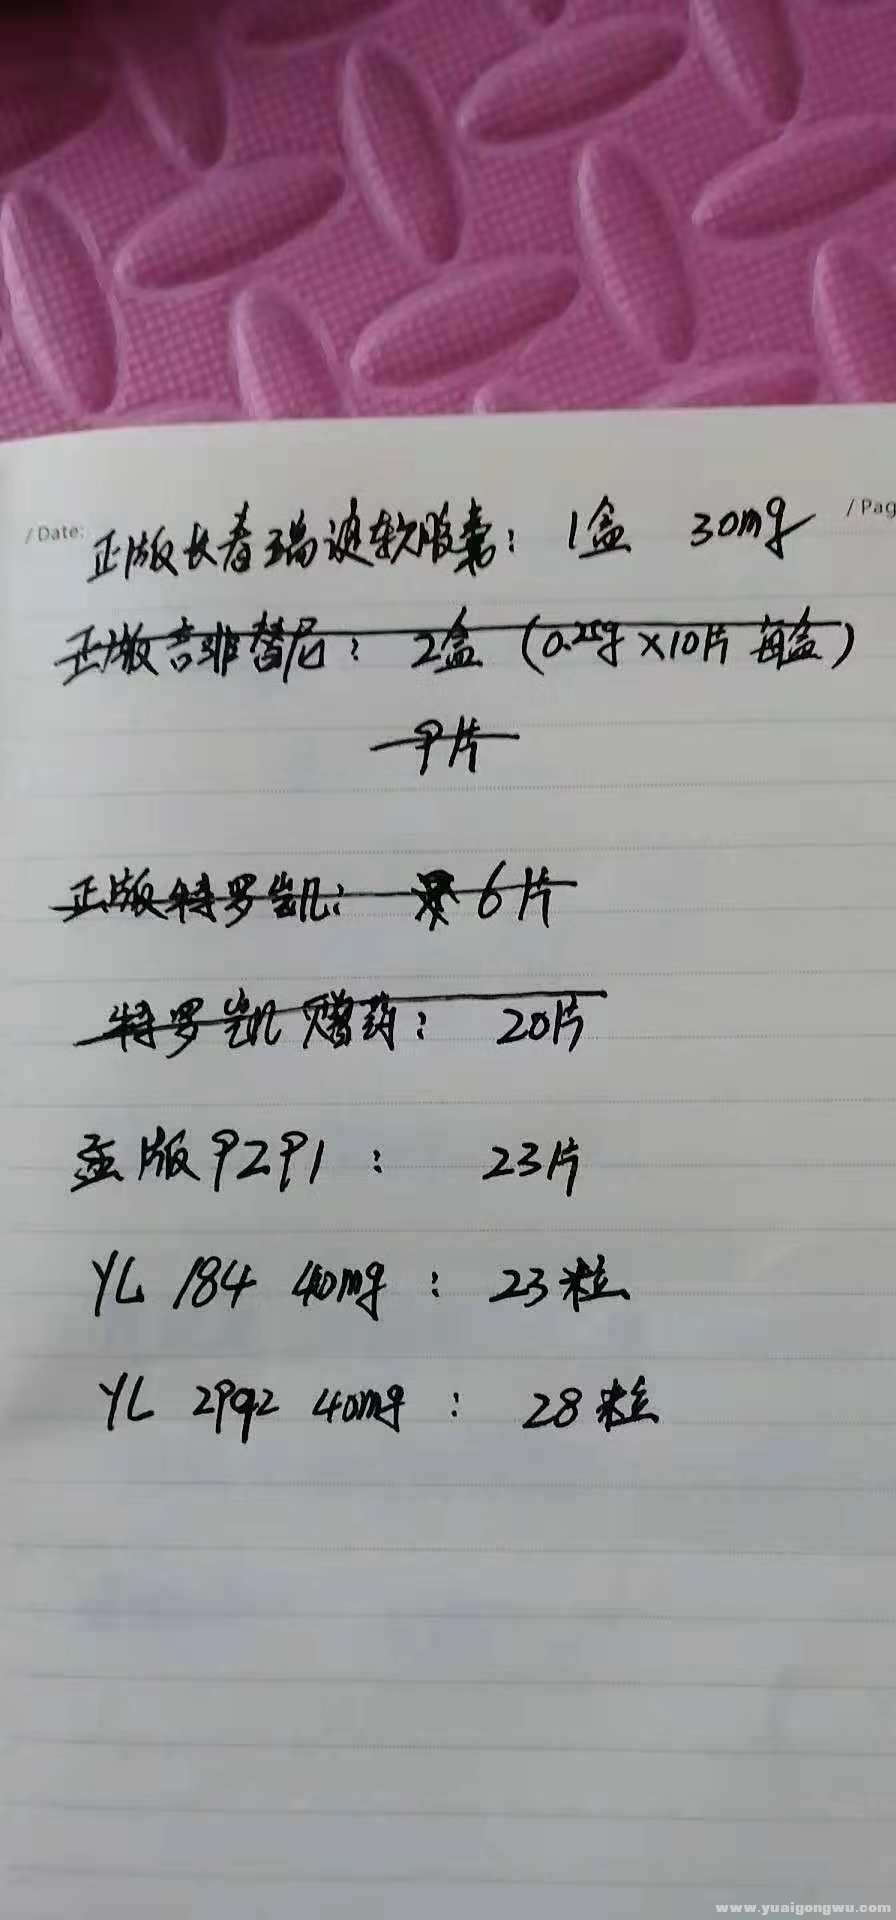 / Date:
/ Pag
正版长春瑞滨软胶囊： 1盒 30mg
正版吉非替尼： 2盒（0.25g×10片 每盒）
9片
正版特罗凯： 6片
特罗凯赠药： 20片
孟版9291： 23片
YL 184 40mg： 23粒
YL 2992 40mg： 28粒
www.yuaigongwu.com